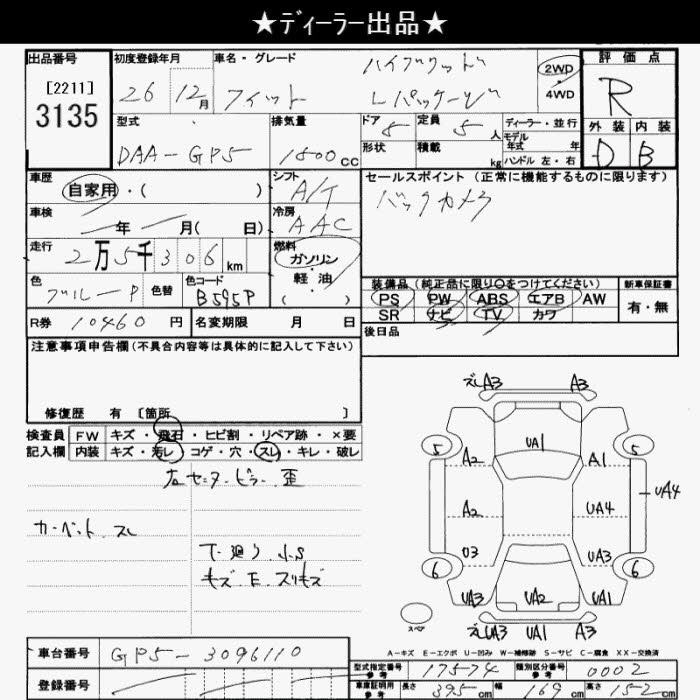 ★ディーラー出品★
出品番号
[2211]
3135
初度登録年月
26 12月
車名・グレード
ハイブリッド
フィット Lパッケージ
2WD
・
4WD
評価点
R
外装 内装
D B
型式
DAA-GP5
排気量
1500cc
ドア
5
形状
定員
5人
積載
kg
ディーラー・並行
モデル
年式 年
ハンドル 左・右
車歴
自家用・( )
シフト
A/T
車検
年 月( 日)
冷房
AAC
走行
2万5千306km
燃料
ガソリン
・
軽・油
( )
色
ブルーP
色替
色コード
B595P
R券 10460円
名変期限 月 日
セールスポイント(正常に機能するものに限ります)
バックカメラ
装備品(純正品に限り〇をつけてください)
PS PW ABS エアB AW
SR ナビ TV カワ
新車保証書
有・無
後日品
注意事項申告欄(不具合内容等は具体的に記入して下さい)
修復歴 有 〔箇所 〕
検査員 FW キズ・飛石・ヒビ割・リペア跡・×要
記入欄 内装 キズ・汚レ コゲ・穴・スレ・キレ・破レ
右センターピラー歪
カーペット スレ
下廻り 小S
キズ E スリキズ
ズレA3 A3
5 5
UA1
A2 A1
A2 UA4 UA4
U3 UA3
6 6
UA3 UA2 UA1
スペア
ズレUA3 UA1 A3
A-キズ E-エクボ U-凹み W-補修跡 S-サビ C-腐食 XX-交換済
車台番号 GP5-3096110
登録番号
型式指定番号
参考
17574
類別区分番号
参考
0002
車庫証明用
参考
長さ 395cm 幅 169cm 高さ 152cm